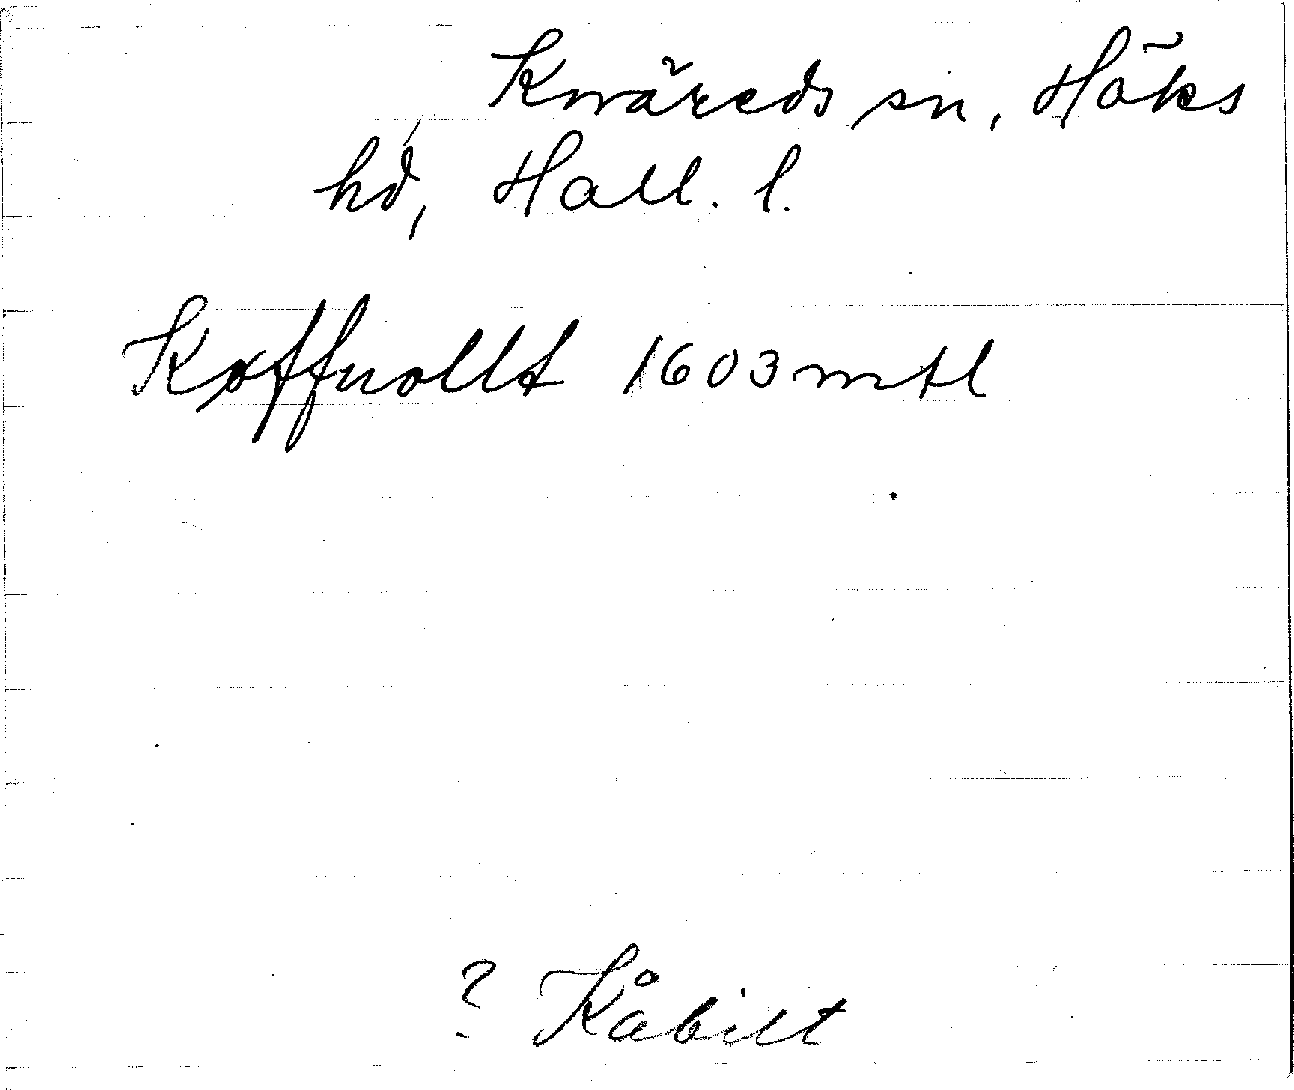 Knäreds sn, Höks
hd, Hall. l.
Køffuollt 1603 mtl
? Kåbilt